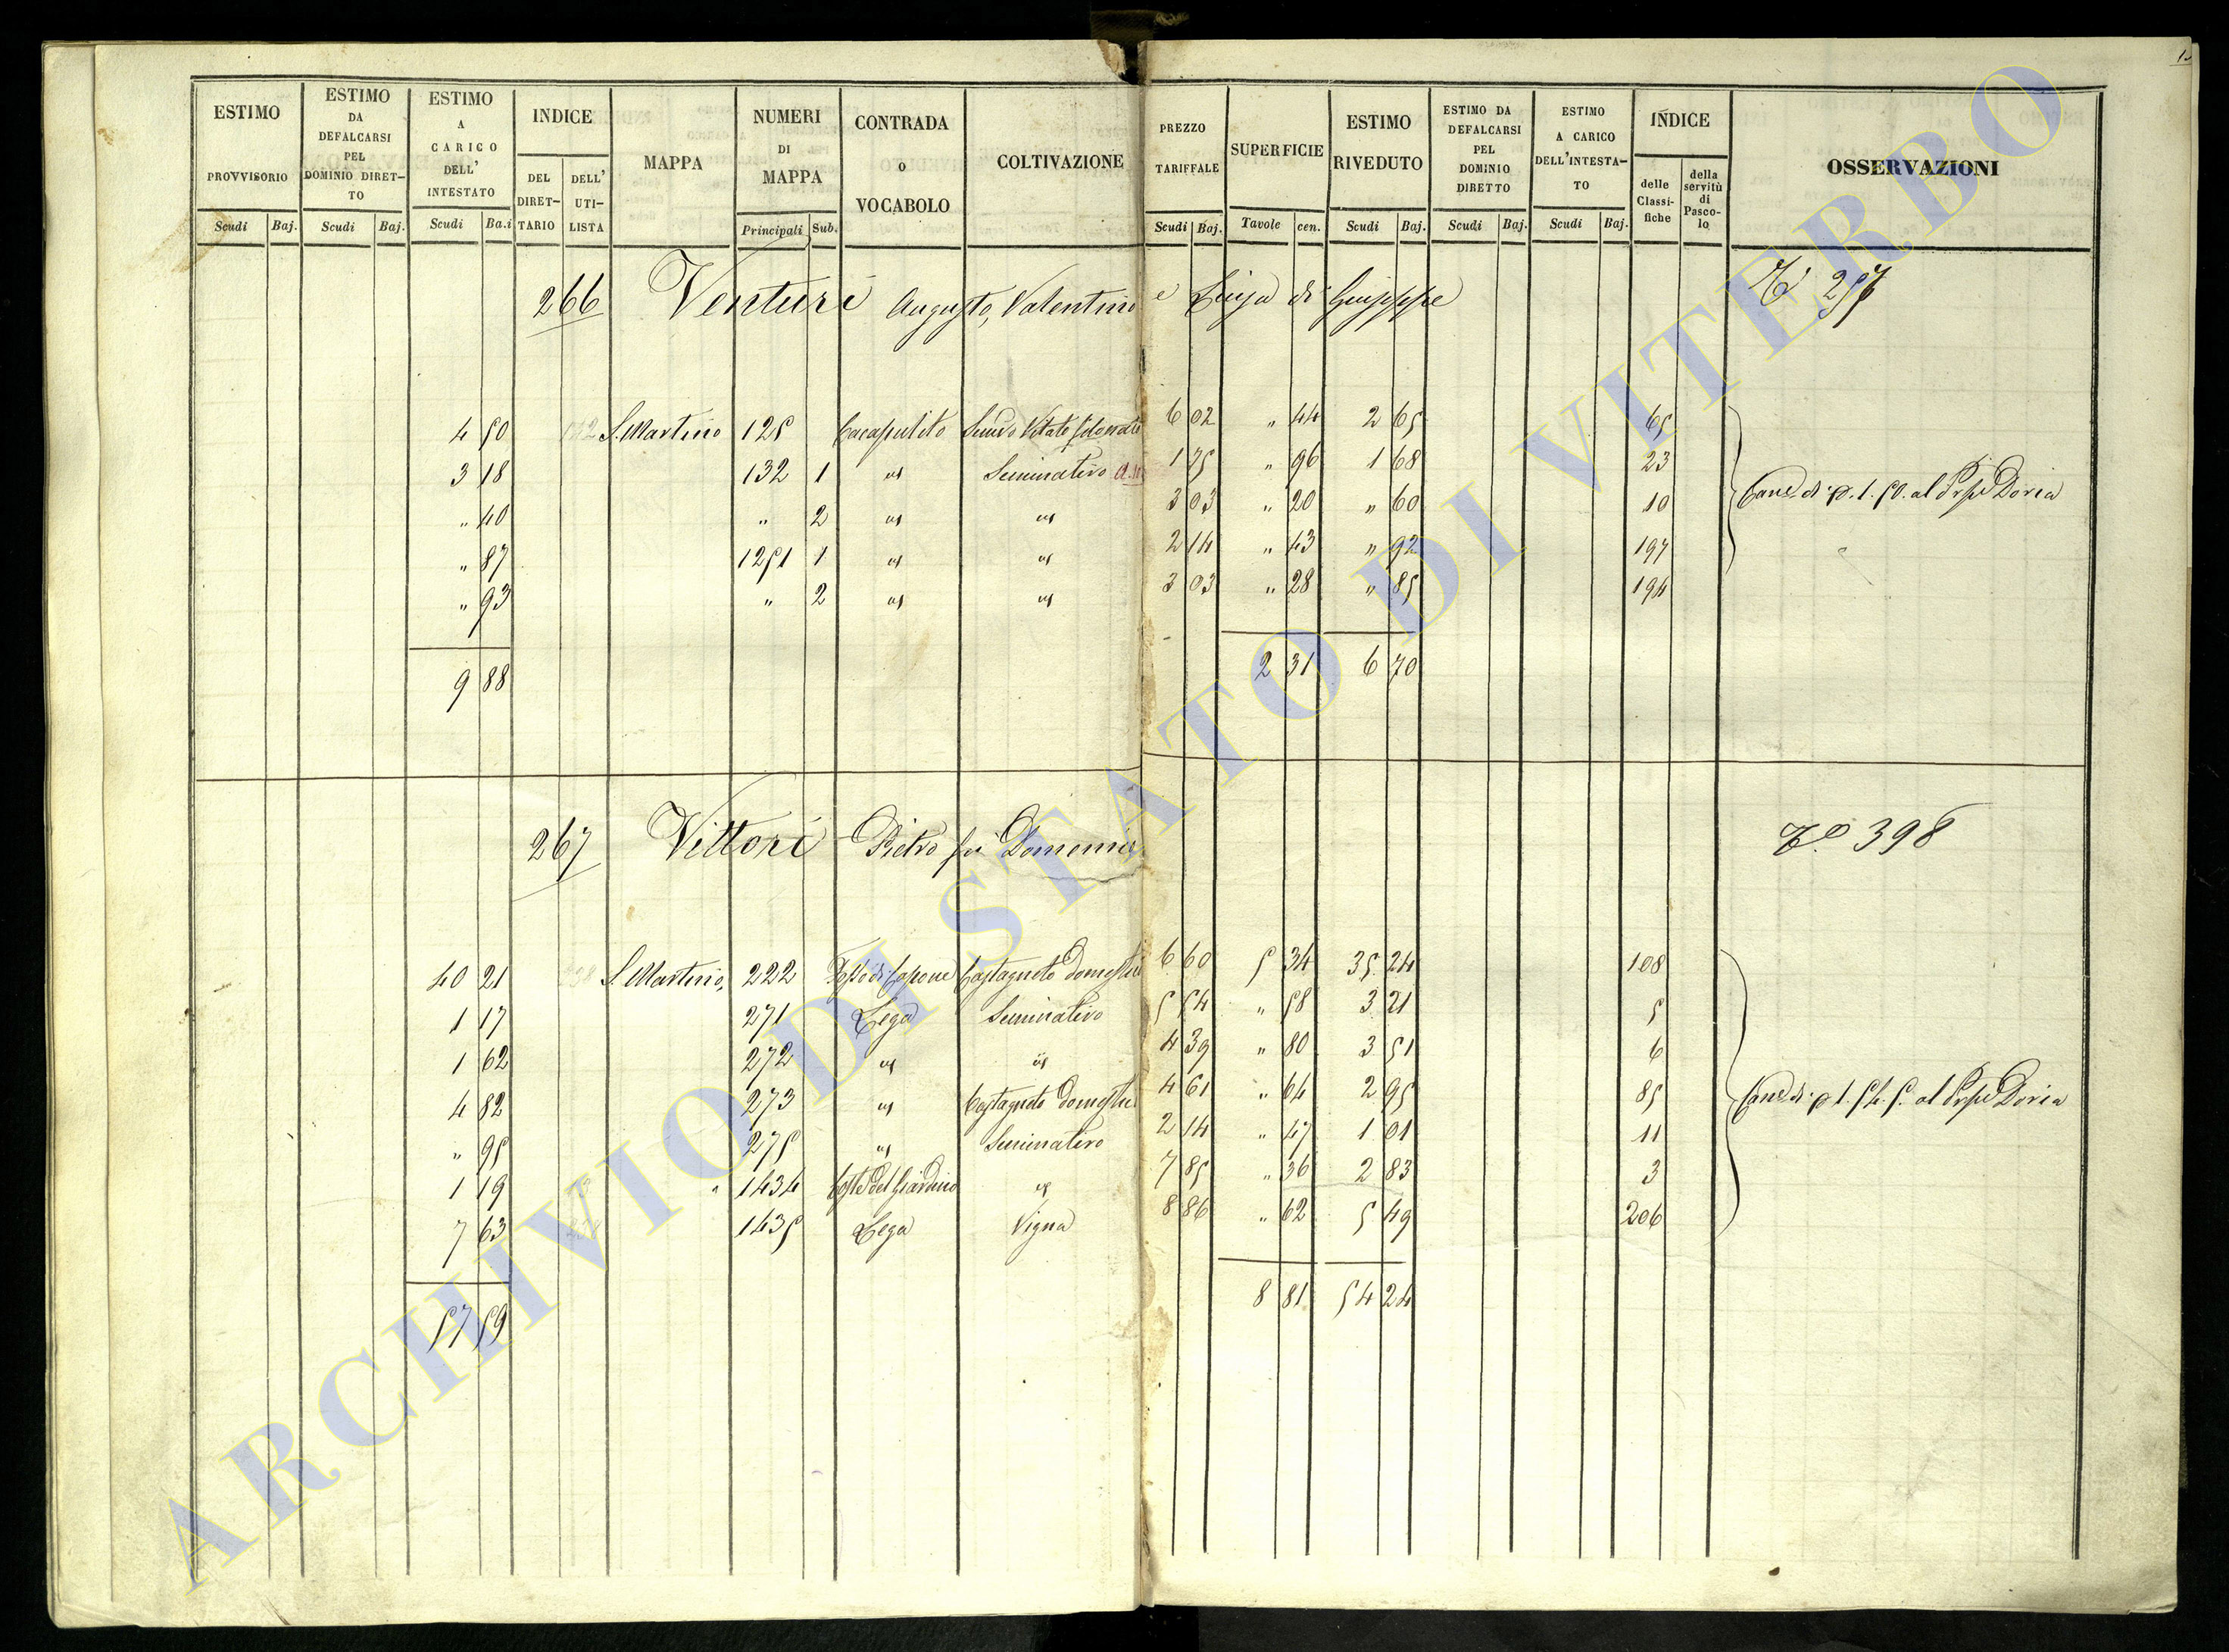 ESTIMO PROVVISORIO Scudi Baj.
ESTIMO DA DEFALCARSI PEL DOMINIO DIRET-TO Scudi Baj.
ESTIMO A CARICO DELL' INTESTATO Scudi Ba.i
INDICE DEL DIRET-TARIO DELL' UTI-LISTA
MAPPA
NUMERI DI MAPPA Principali Sub.
CONTRADA o VOCABOLO
COLTIVAZIONE
PREZZO TARIFFALE Scudi Baj.
SUPERFICIE Tavole cen.
ESTIMO RIVEDUTO Scudi Baj.
ESTIMO DA DEFALCARSI PEL DOMINIO DIRETTO Scudi Baj.
ESTIMO A CARICO DELL'INTESTA-TO Scudi Baj.
INDICE delle Classi-fiche della servitù di Pasco-lo
OSSERVAZIONI
266 Venturi Augusto, Valentino e Luigia di Giuseppe 257
4 50 S. Martino 125 Cacapulito 6 02 " 44 2 65 65
3 18 132 1 " Seminativo 1 75 " 96 1 68 23
" 40 " 2 " " 3 03 " 20 " 60 10
" 87 1251 1 " " 2 14 " 43 " 92 197
" 93 " 2 " " 3 03 " 28 " 85 194
al Doria
9 88 2 31 6 70
267 Vittori Pietro fu Domenico 398
40 21 S. Martino, 222 Fosso di Capone Castagneto domestico 6 60 5 34 35 24 108
1 17 271 Lega Seminativo 5 54 " 58 3 21 5
1 62 272 " " 4 39 " 80 3 51 6
4 82 273 " Castagneto domestico 4 61 " 64 2 95 85
" 95 275 " Seminativo 2 14 " 47 1 01 11
1 19 " 1434 Coste del Giardino " 7 85 " 36 2 83 3
7 63 238 1435 Lega Vigna 8 86 " 62 5 49 206
al Doria
57 59 8 81 54 24
ARCHIVIO DI STATO DI VITERBO